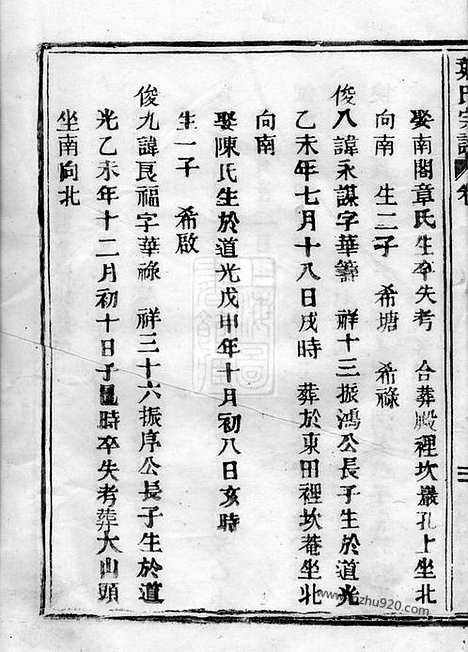 葉氏宗譜 卷
二
娶南閣章氏生卒失考 合葬殿裡坎巖孔上坐北
向南 生二子 希塘 希祿
俊八諱永謀字華籌 祥十三振鴻公長子生於道光
乙未年七月十八日戌時 葬於東田裡坎菴坐北
向南
娶陳氏生於道光戊申年十月初八日亥時
生一子 希啟
俊九諱良福字華祿 祥三十六振序公長子生於道
光乙未年十二月初十日子時卒失考葬大山頭
坐南向北
zhu920.com